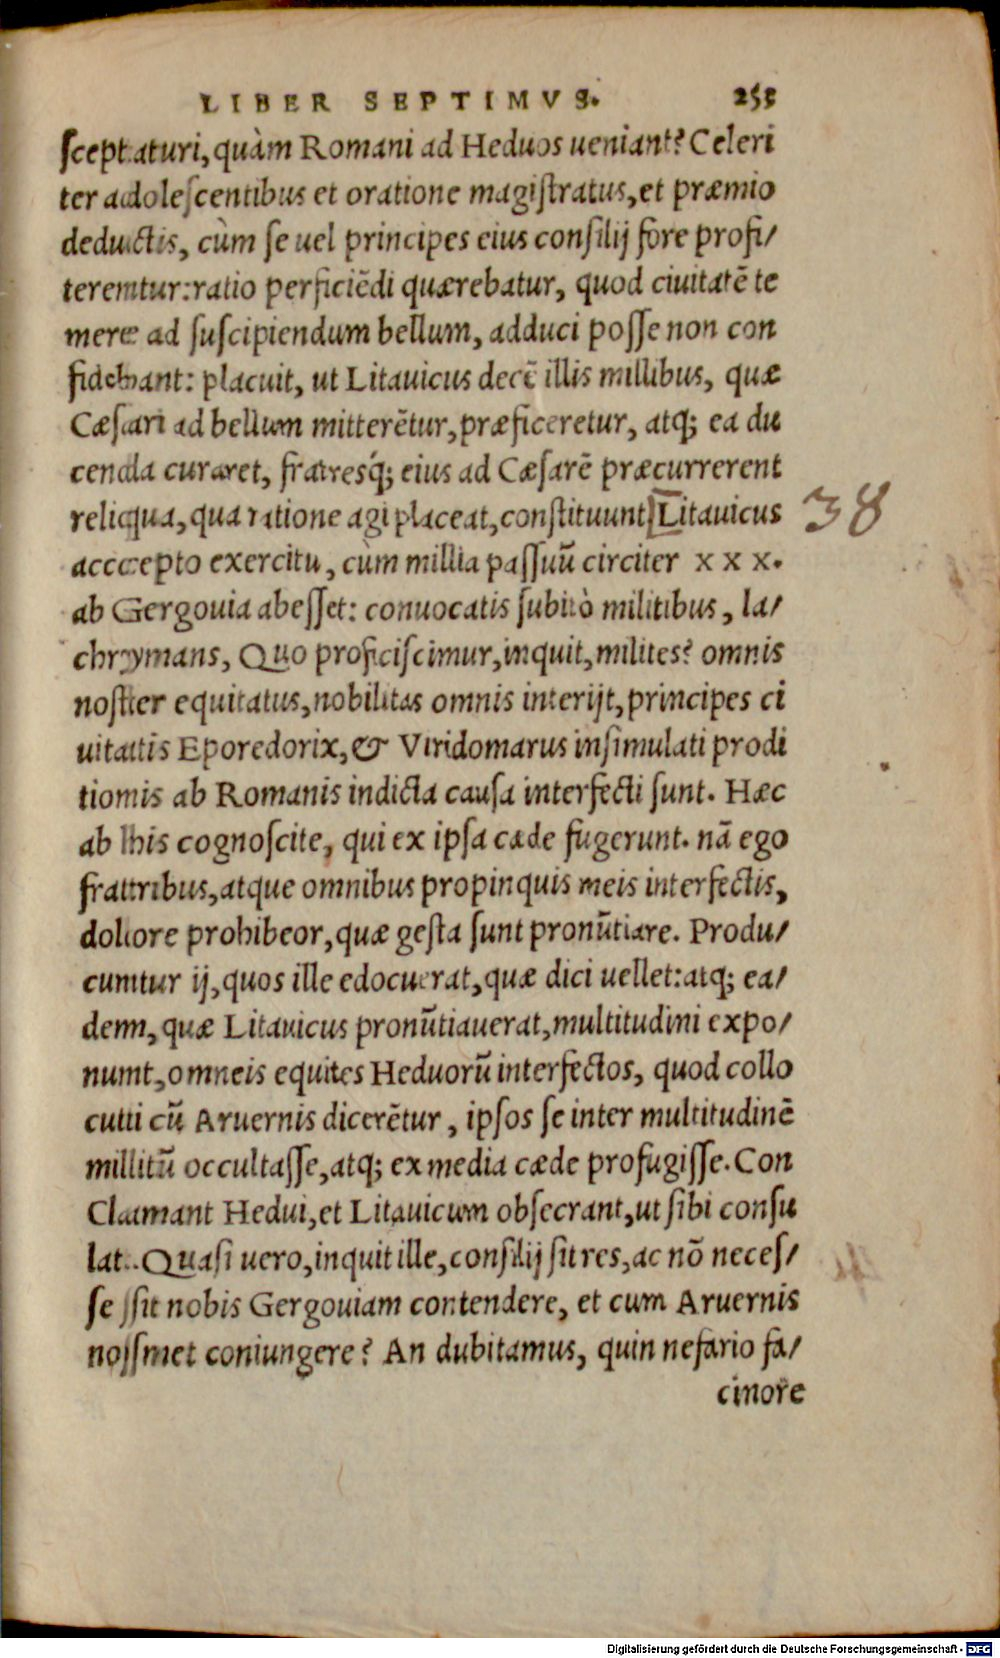 LIBER SEPTIMVS. 255
sceptaturi, quàm Romani ad Heduos ueniant? Celeri
ter adolescentibus et oratione magistratus, et præmio
deductis, cùm se uel principes eius consilij fore profi/
terentur: ratio perficiẽdi quærebatur, quod ciuitatẽ te
mere ad suscipiendum bellum, adduci posse non con
fidebant: placuit, ut Litauicus decẽ illis millibus, quæ
Cæsari ad bellum mitterẽtur, præficeretur, atq; ea du
cenda curaret, fratresq́; eius ad Cæsarẽ præcurrerent
reliqua, qua ratione agi placeat, constituunt[Litauicus 38
accepto exercitu, cùm millia passuũ circiter x x x.
ab Gergouia abesset: conuocatis subitò militibus, la/
chrymans, Quo proficiscimur, inquit, milites? omnis
noster equitatus, nobilitas omnis interijt, principes ci
uitatis Eporedorix, & Viridomarus insimulati prodi
tionis ab Romanis indicta causa interfecti sunt. Hæc
ab his cognoscite, qui ex ipsa cæde fugerunt. nã ego
fratribus, atque omnibus propinquis meis interfectis,
dolore prohibeor, quæ gesta sunt pronũtiare. Produ/
cuntur ij, quos ille edocuerat, quæ dici uellet: atq; ea/
dem, quæ Litauicus pronũtiauerat, multitudini expo/
nunt, omneis equites Heduorũ interfectos, quod collo
cuti cũ Aruernis dicerẽtur, ipsos se inter multitudinẽ
militũ occultasse, atq; ex media cæde profugisse. Con
Clamant Hedui, et Litauicum obsecrant, ut sibi consu
lat. Quasi uero, inquit ille, consilij sit res, ac nõ neces/
se sit nobis Gergouiam contendere, et cum Aruernis
nosmet coniungere? An dubitamus, quin nefario fa/
cinore
Digitalisierung gefördert durch die Deutsche Forschungsgemeinschaft - DFG